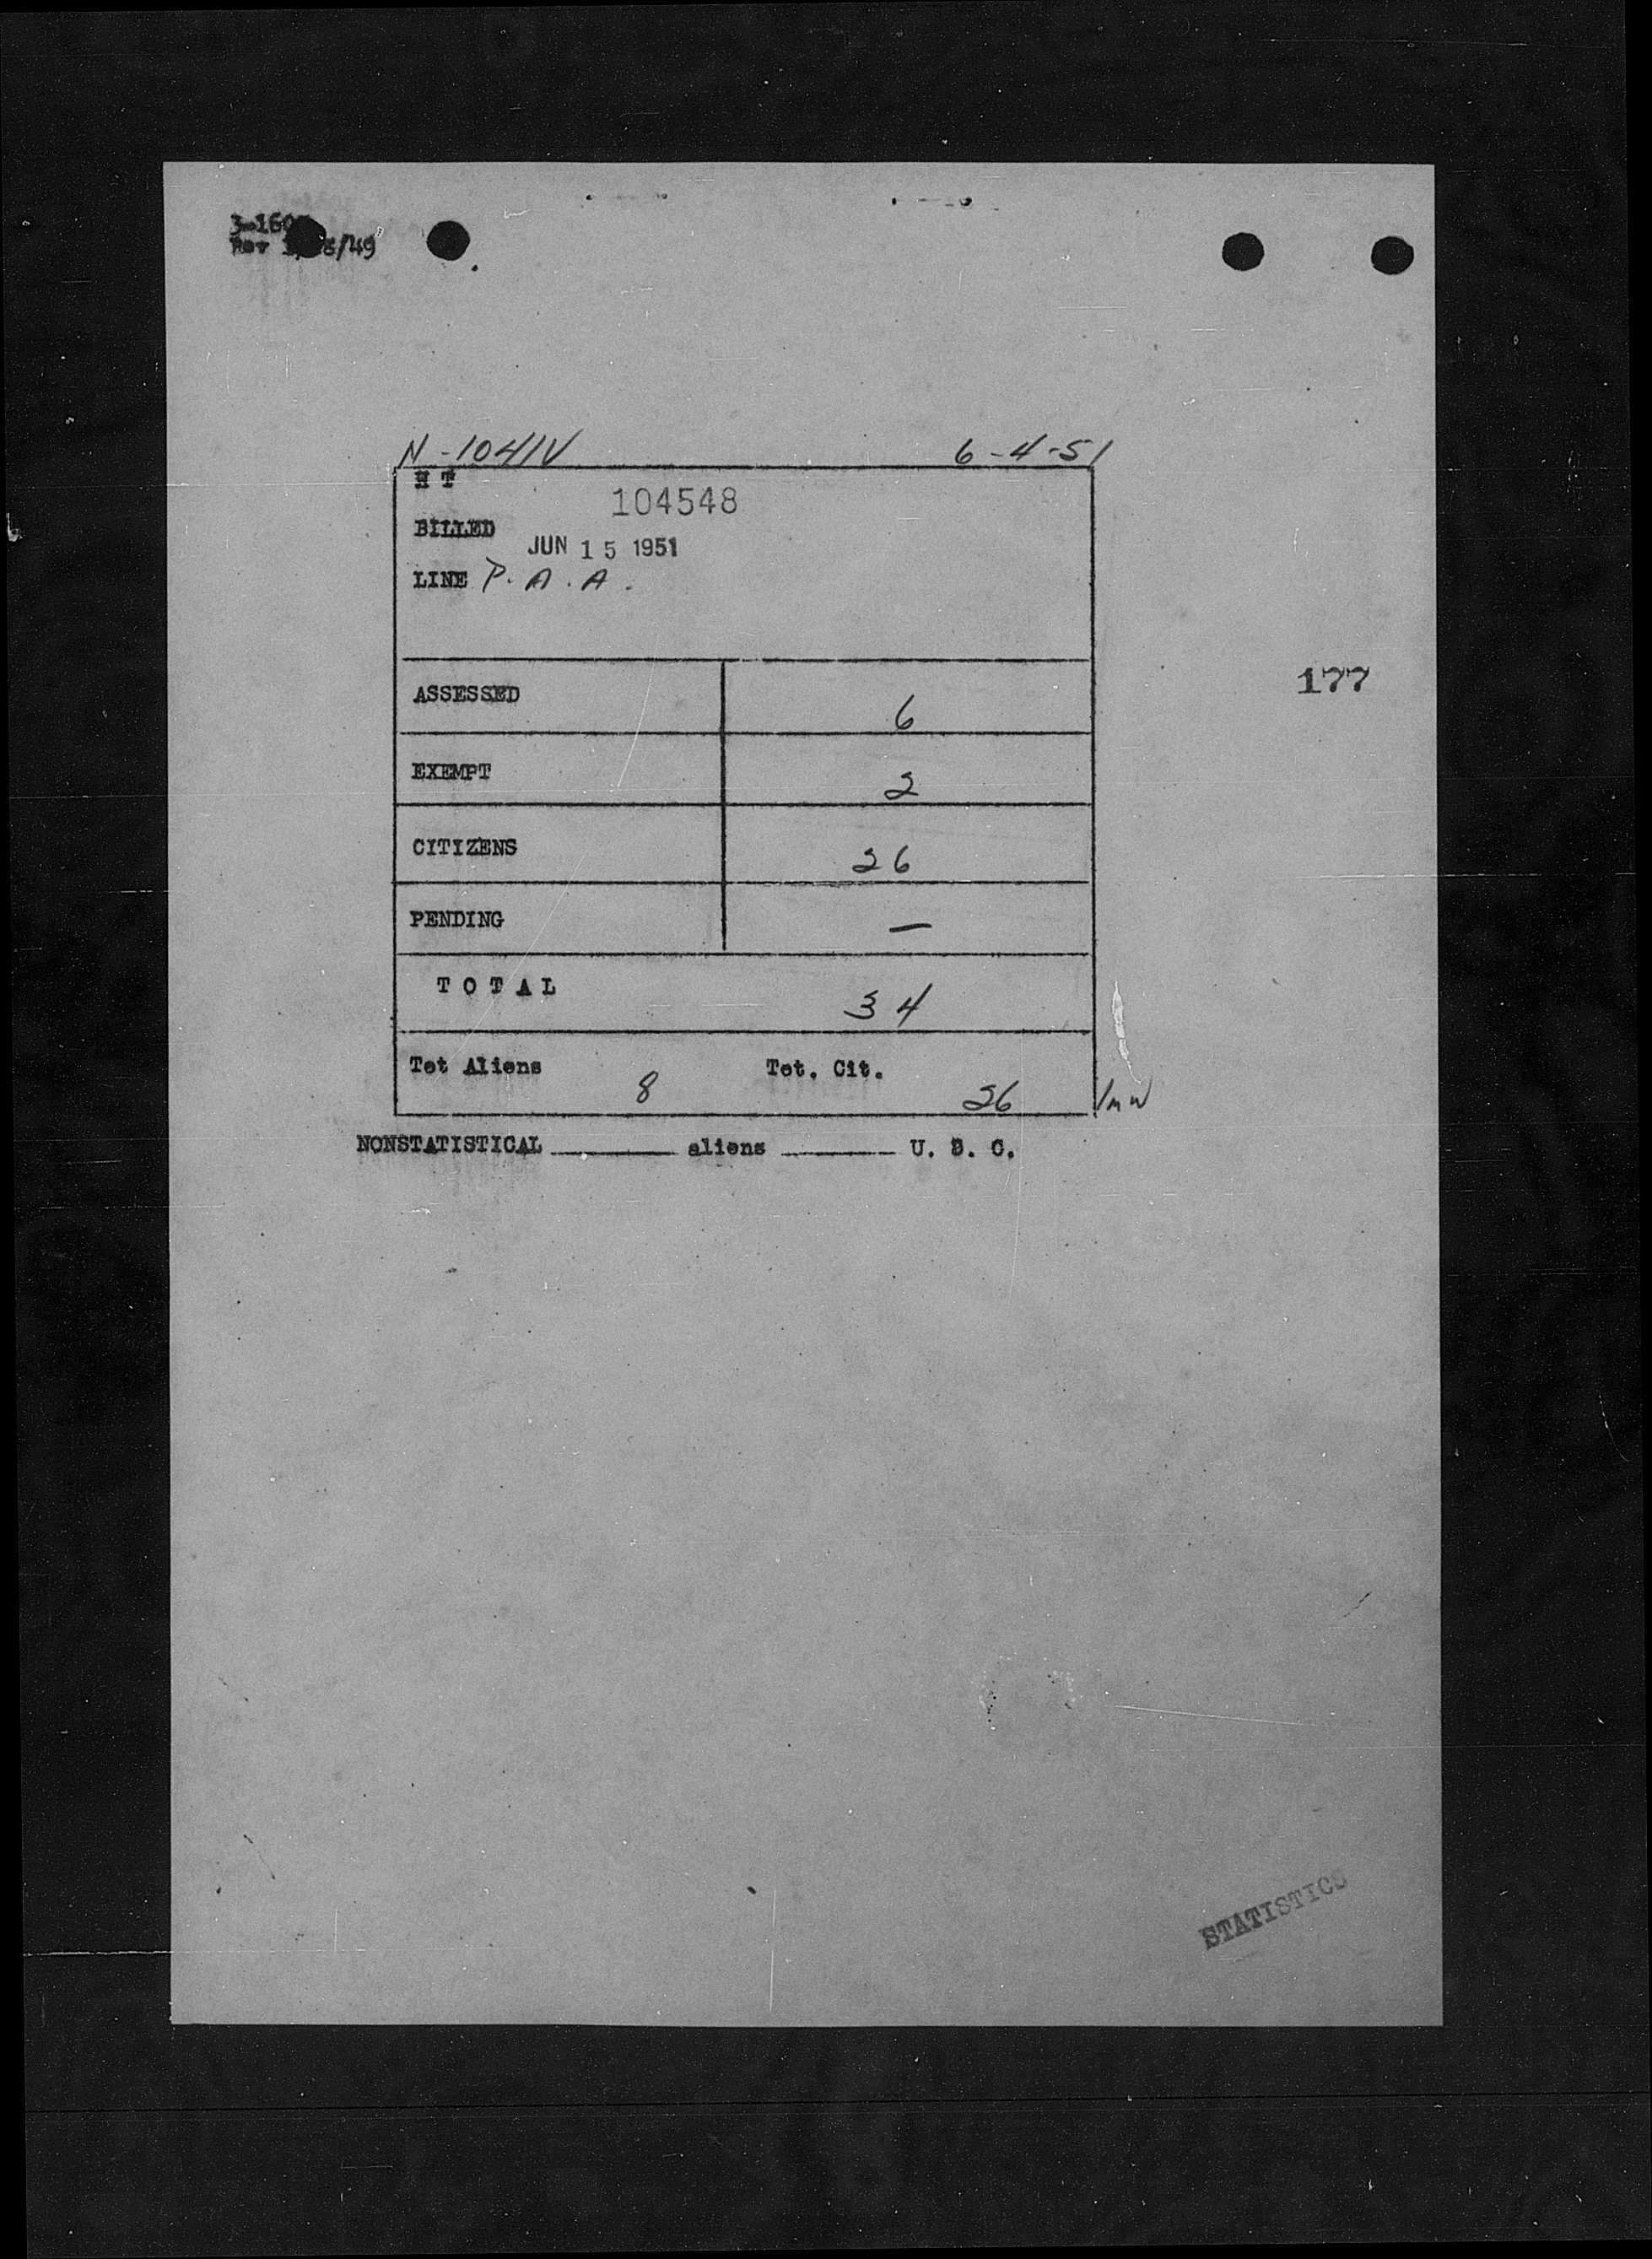 N-1041V 6-4-51
H T
104548
BILLED
JUN 15 1951
LINE P. A. A.
177
ASSESSED 6
EXEMPT 2
CITIZENS 26
PENDING —
T O T A L 34
Tot Aliens 8 Tot. Cit. 26
NONSTATISTICAL ______ aliens ______ U. S. C.
STATISTICS